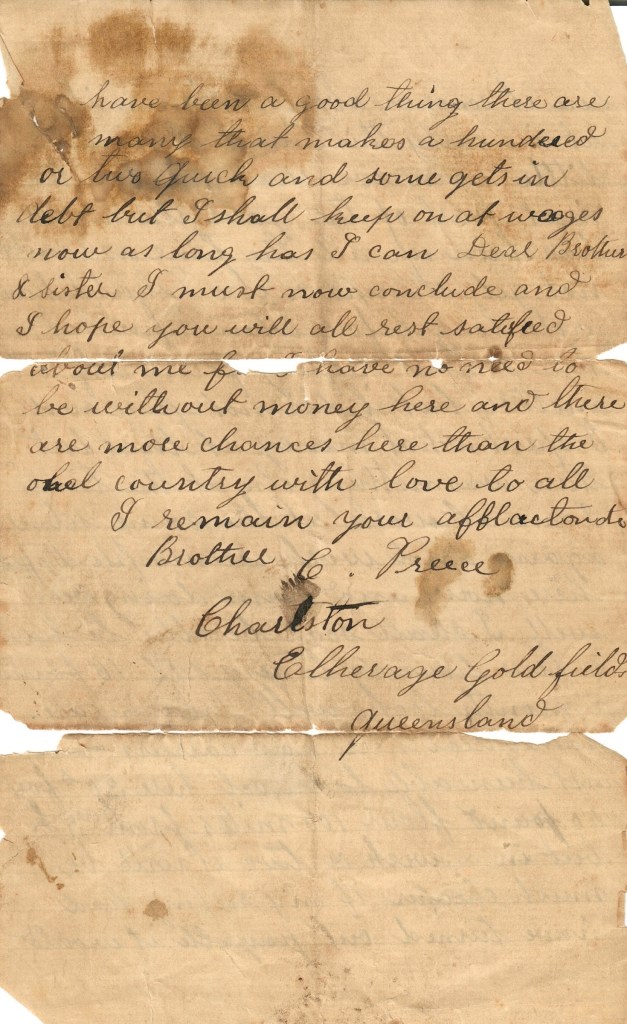 have been a good thing there are
many that makes a hundred
or two Quick and some gets in
debt but I shall keep on at wages
now as long has I can Dear Brother
& sister I must now conclude and
I hope you will all rest satifed
about me for I have no need to
be without money here and there
are more chances here than the
old country with love to all
I remain your
Brother C. Preece
Charlston
Etherage Gold fields
Queensland